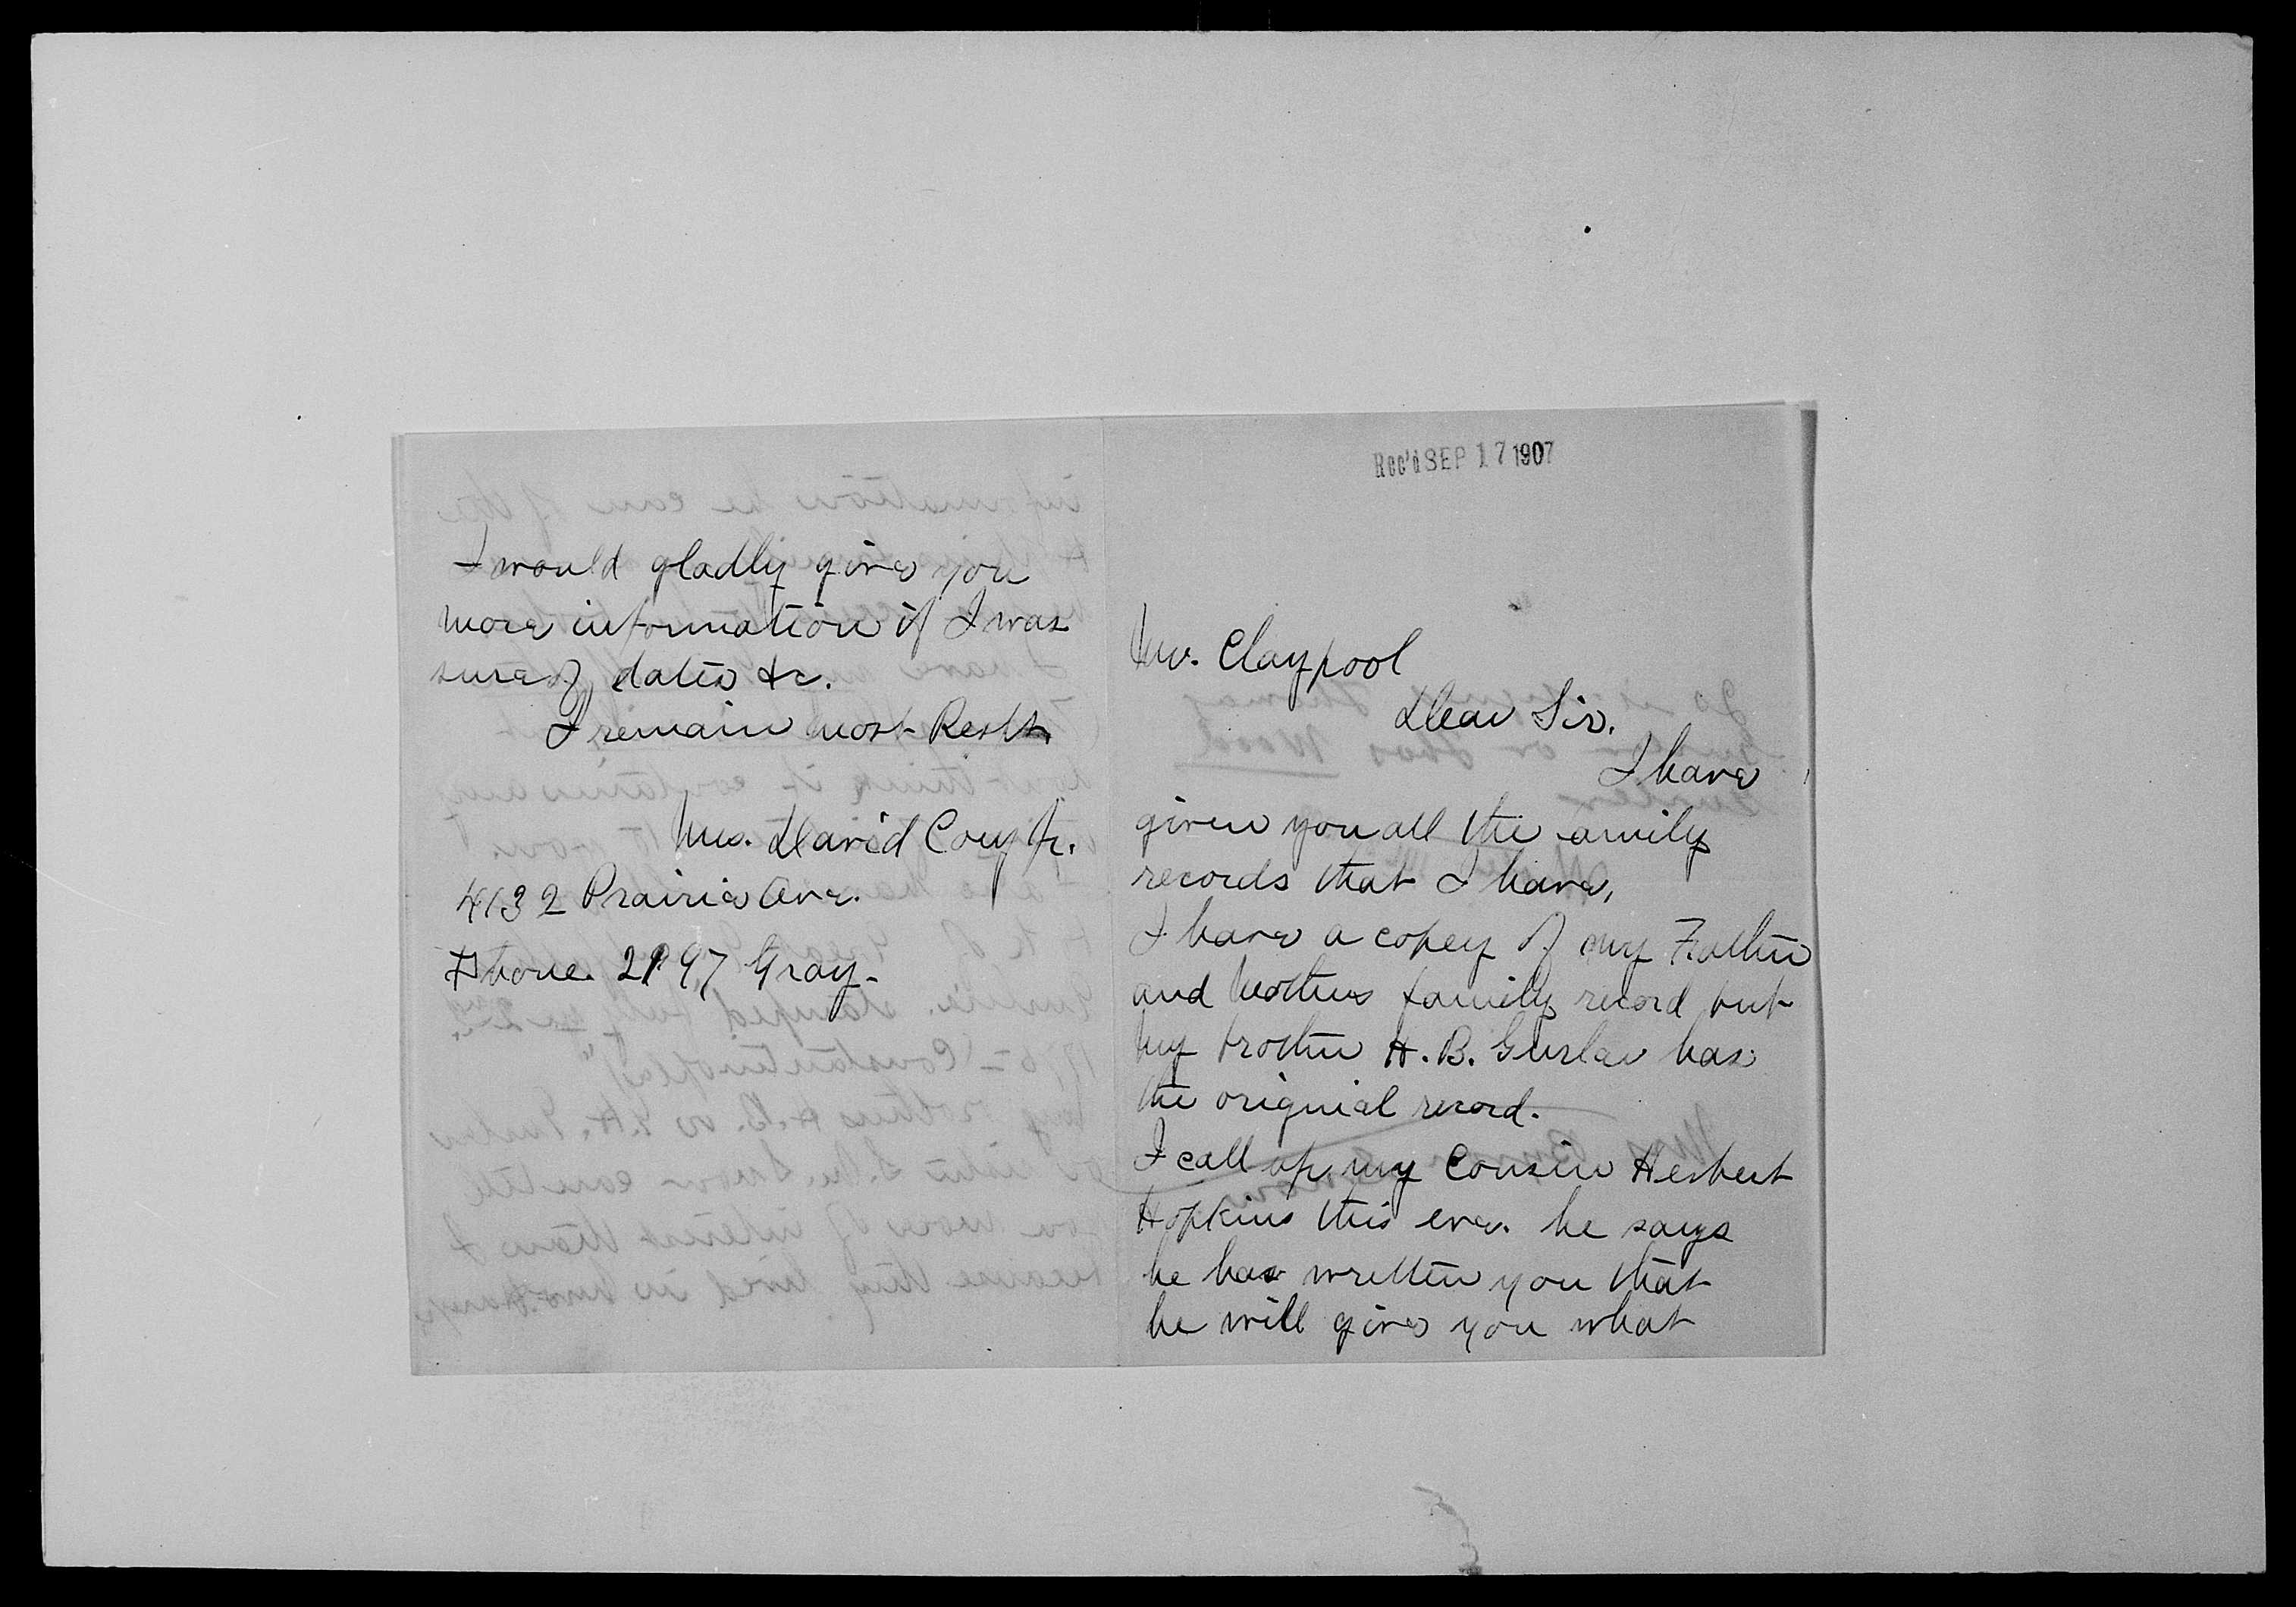 Rec'd SEP 17 1907
Mr. Claypool
Dear Sir.
I have
given you all the amily
records that I have,
I have a copey of my Father
and Mothers family record but
my brother H. B. Gurler has
the original record.
I call up my Cousin Herbert
Hopkins this eve. he says
he has written you that
he will give you what
I would gladly give you
more information if I was
sure of dates &c.
I remain most
Mrs. David Coey Jr.
4132 Prairie Ave.
Phone. 2197 Gray-